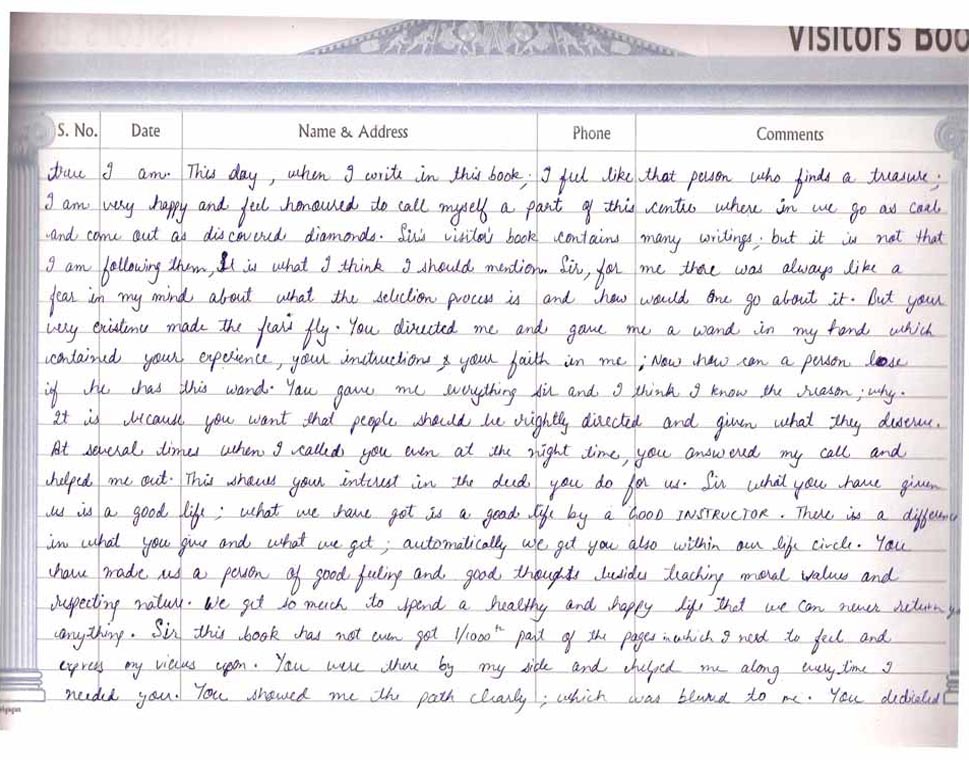 VISITORS BOO
S. No. Date Name & Address Phone Comments
true I am. This day, when I write in this book; I feel like that person who finds a treasure;
I am very happy and feel honoured to call myself a part of this centre where in we go as coal
and come out as discovered diamonds. Sir's visitor book contains many writings; but it is not that
I am following them, It is what I think I should mention. Sir, for me there was always like a
fear in my mind about what the selection process is and how would one go about it. But your
very existence made the fears fly. You directed me and gave me a wand in my hand which
contained your experience, your instructions & your faith in me; Now how can a person lose
if he has this wand. You gave me everything sir and I think I know the reason; why.
It is because you want that people should be rightly directed and given what they deserve.
At several times when I called you even at the night time, you answered my call and
helped me out. This shows your interest in the deed you do for us. Sir what you have given
us is a good life; what we have got is a good life by a GOOD INSTRUCTOR. There is a difference
in what you give and what we get; automatically we get you also within our life circle. You
have made us a person of good feeling and good thoughts besides teaching moral values and
respecting nature. We get so much to spend a healthy and happy life that we can never return
anything. Sir this book has not even got 1/1000th part of the pages in which I need to feel and
express my views upon. You were there by my side and helped me along every time I
needed you. You showed me the path clearly; which was blured to me. You dedicated